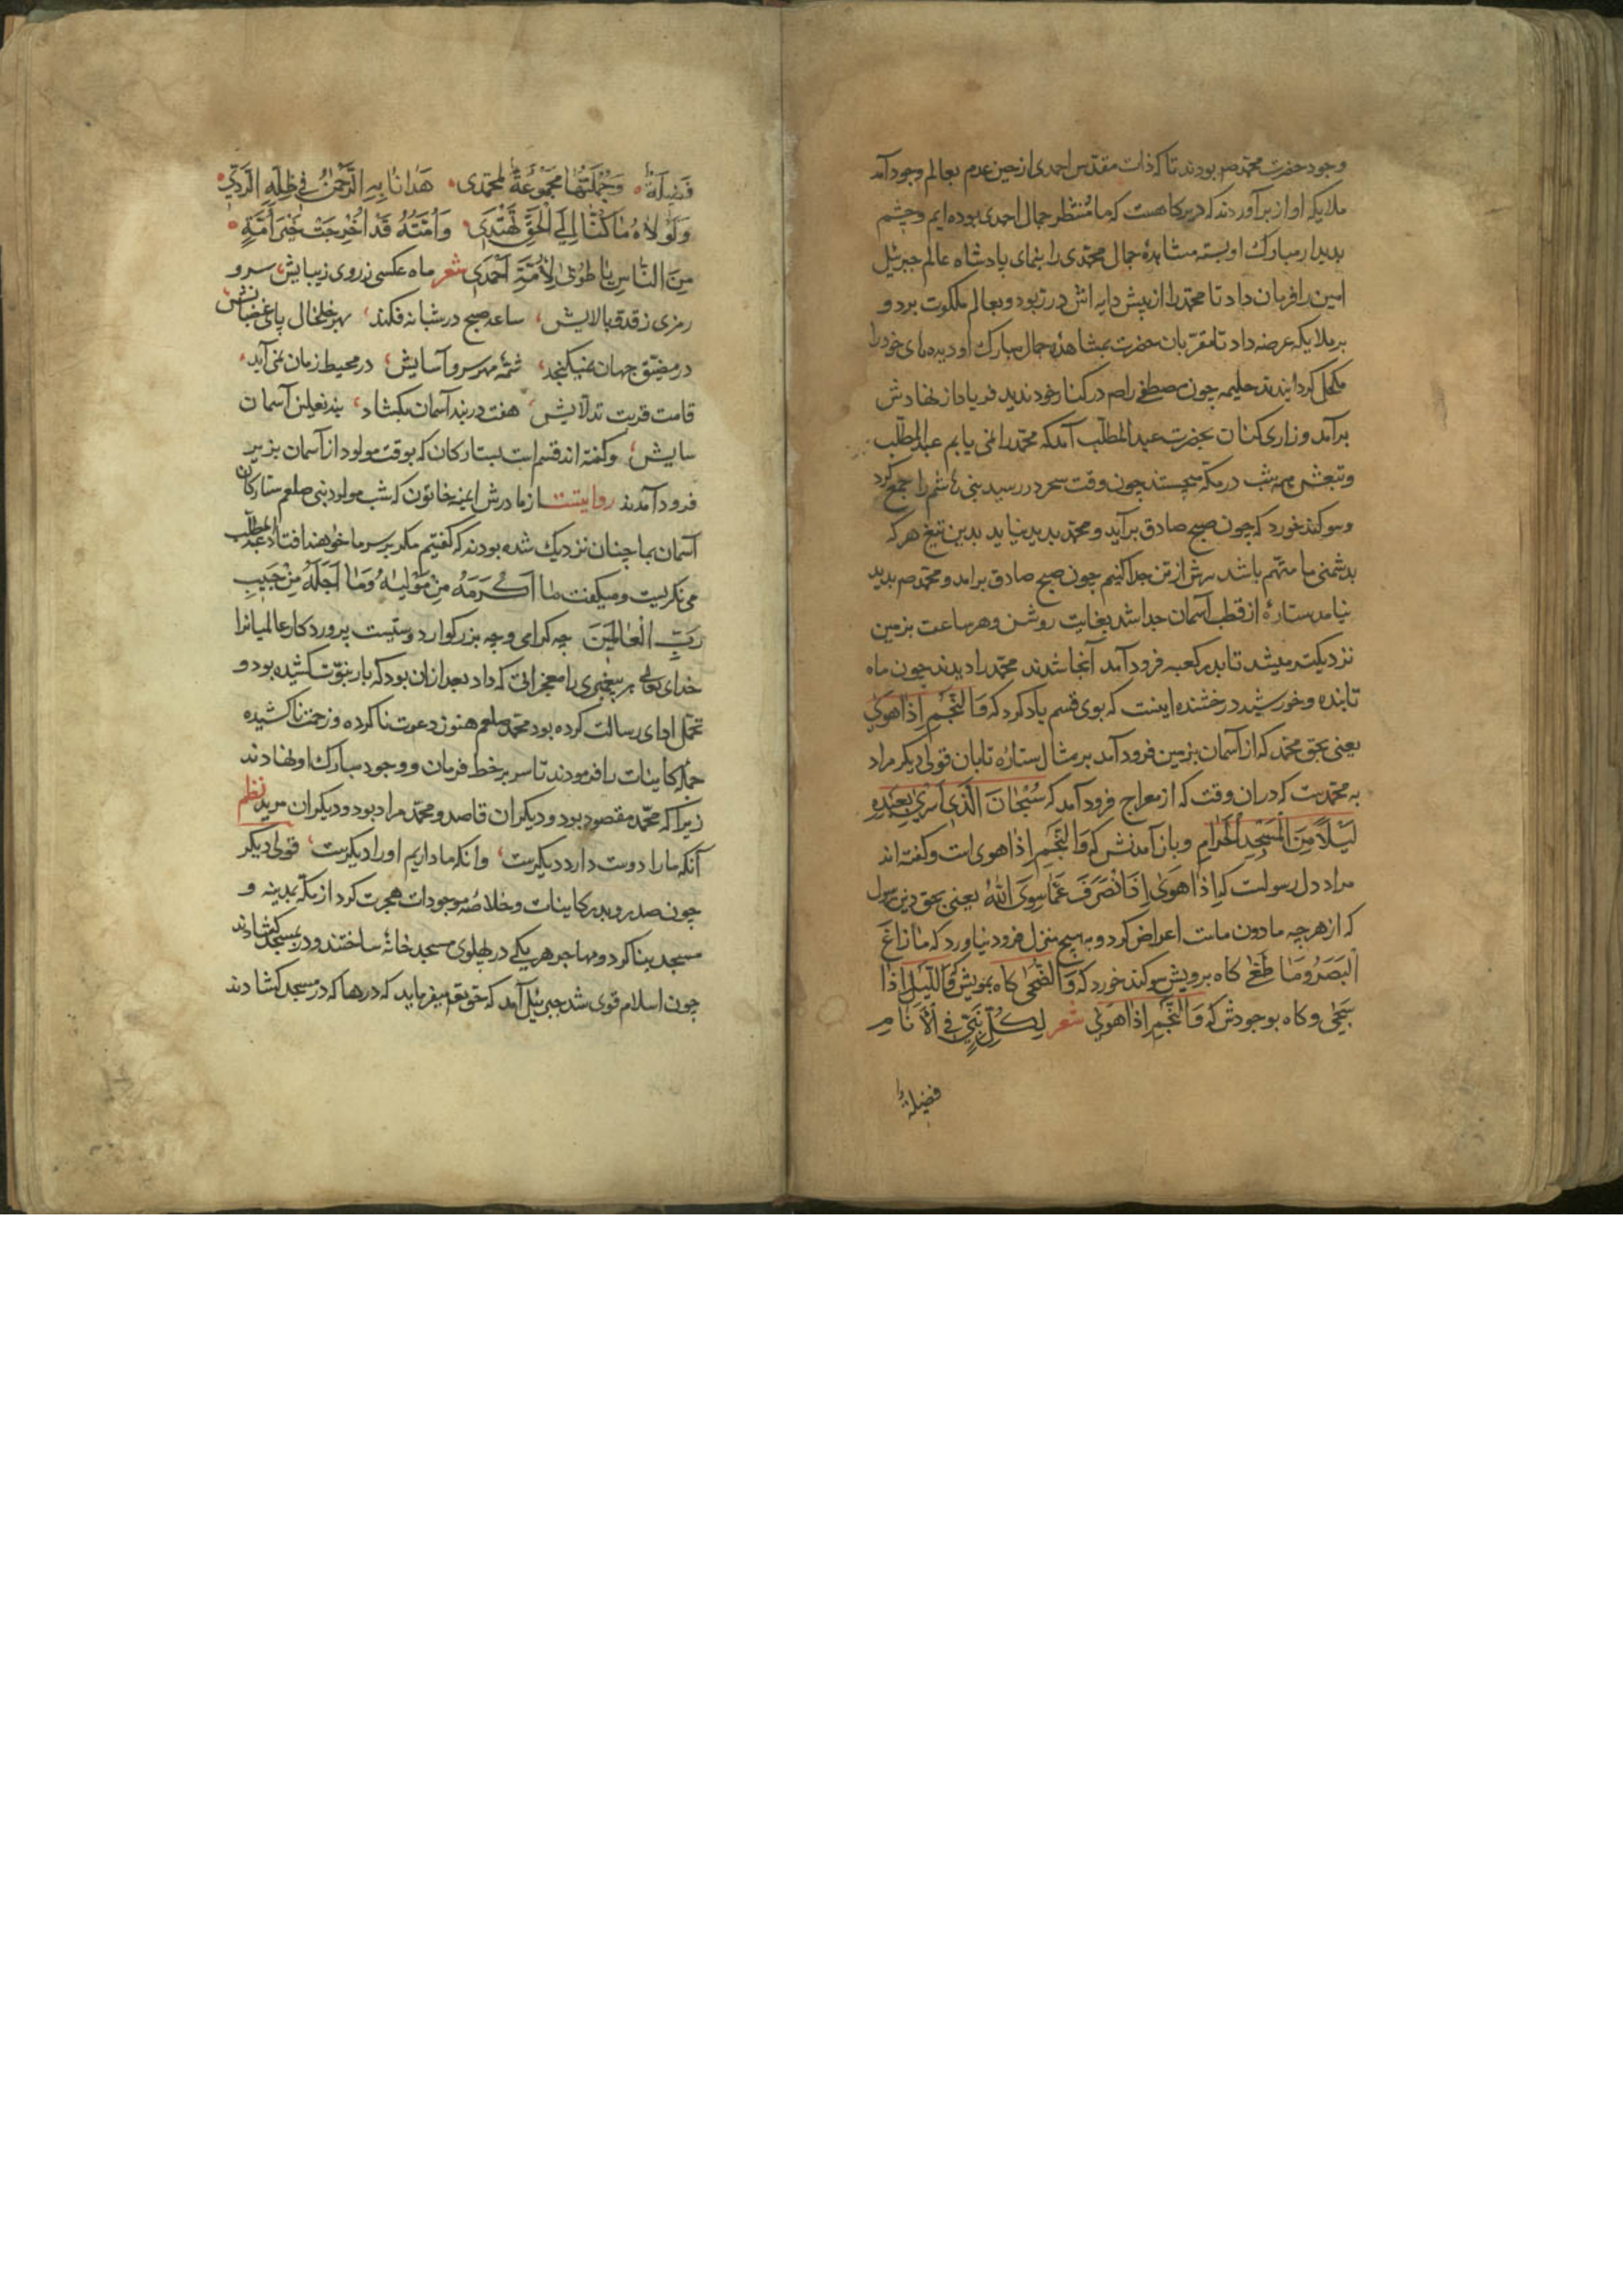 وجود حضرت محمد صم بودند تا که ذات مقدس احمدی از حین عدم بعالم وجود آمد
ملایکه اواز برآوردند که دیرکاهست که ما منتظر جمال احمدی بوده ایم و چشم
بدیدار مبارک او بسته مشاهدهٔ جمال محمدی را بنمای پادشاه عالم جبرئیل
امین را فرمان داد تا محمد را از پیش دایه اش در ربود و بعالم ملکوت برد و
بر ملایکه عرضه داد تا مقربان حضرت بمشاهدهٔ جمال مبارک او دیده های خود را
مکحل کردانیدند حلیمه چون مصطفی را صم در کنار خود ندید فریاد از نهادش
برآمد و زاری کنان بحضرت عبدالمطلب آمد که محمد را نمی یابم عبدالمطلب
و تبعش همه شب در مکه میجستند چون وقت سحر در رسید بنی هاشم را جمع کرد
و سوکند خورد که چون صبح صادق برآید و محمد پدید نیاید بدین تیغ هر که
بدشمنی ما متهم باشد سرش از تن جدا کنیم چون صبح صادق برامد و محمد صم پدید
نیامد ستارهٔ از قطب آسمان جدا شد بغایت روشن و هر ساعت بزمین
نزدیکتر میشد تا بدر کعبه فرود آمد آنجا شدند محمد را دیدند چون ماه
تابنده و خورشید درخشنده اینست که بوی قسم یاد کرد که وَالنَّجْمِ اِذَا هَوَیٰ
یعنی بحق محمد که از آسمان بزمین فرود آمد بر مثال ستارهٔ تابان قولی دیکر مراد
به محمدست که دران وقت که از معراج فرود آمد که سُبْحَانَ الَّذِی اَسْرَیٰ بِعَبْدِهِ
لَیْلًا مِنَ الْمَسْجِدِ الْحَرَامِ و باز آمدنش که وَالنَّجْمِ اِذَا هوی است و کفته اند
مراد دل رسولست که اِذَا هَوَیٰ اِذَا انْصَرَفَ عَمَّا سِوَی اللهُ یعنی بحق دین رسول
که از هر چه مادون ماست اعراض کرد و بهیچ منزل فرود نیاورد که مَا زَاغَ
الْبَصَرُ وَمَا طَغَیٰ کاه برویش سوکند خورد که وَالضُّحَیٰ کاه بمویش که وَاللَّیْلِ اِذَا
سَجَیٰ و کاه بوجودش که وَالنَّجْمِ اِذَا هَوَیٰ شعر لِکُلِّ نَبِیٍّ فِی الْاَنَامِ
فضیلةٌ
فَضِیلَةٌ وَجُمْلَتُهَا مَجْمُوعَةٌ لِمُحَمَّدِی هَدَانَا بِهِ الرَّحْمٰنُ فِی ظُلَّةِ الرَّدِیِّ
وَلَوْلَاهُ مَا کُنَّا اِلَی الْحَقِّ نَهْتَدِی وَاُمَّتُهُ قَدْ اُخْرِجَتْ خَیْرَ اُمَّةٍ
مِنَ النَّاسِ یَا طُوبَیٰ لِاُمَّةِ اَحْمَدِی شعر ماه عکسی ز روی زیبایش سرو
رمزی ز قد و بالایش ساعد صبح در شبانه فکند بهر خلخال پای
در مضیق جهان نمیکنجد شمهٔ مهر سر و آسایش در محیط زمان نمی آید
قامت قربت تدلایش هفت دربند آسمان بکشاد بند نعلین آسمان
سایش و کفته اند قسم است بستارکان که بوقت مولود از آسمان بزیر
فرود آمدند روایتست از مادرش ایمنه خاتون که شب مولود نبی صلعم ستارکان
آسمان بما چنان نزدیک شده بودند که کفتیم مکر بر سر ما خواهند افتاد عبدالمطلب
می نکریست و میکفت مَا اَکْرَمَهُ مِنْ مَوْلَیٰهُ وَمَا اَجَلَّهُ مِنْ حَبِیبِ
رَبِّ الْعَالَمِینَ چه کرامی و چه بزرکوارد دوستیست پروردکار عالمیانرا
خدای تعالی هر پیغمبری را معجزاتی که داد بعد ازان بود که بار نبوت کشیده بود و
تحمل ادای رسالت کرده بود محمد صلعم هنوز دعوت ناکرده و زحمت ناکشیده
جمله کاینات را فرمودند تا سر بر خط فرمان و وجود مبارک او نهادند
زیرا که محمد مقصود بود و دیکران قاصد و محمد مراد بود و دیکران مرید نظم
آنکه ما را دوست دارد دیکرست وانکه ما داریم او را دیکرست قولی دیکر
چون صدر و بدر کاینات و خلاصهٔ موجودات هجرت کرد از مکه بمدینه و
مسجد بنا کرد و مهاجر هر یکی در پهلوی مسجد خانهٔ ساختند و در بمسجد کشادند
چون اسلام قوی شد جبرئیل آمد که حق تع میفرماید که درها که در مسجد کشادند